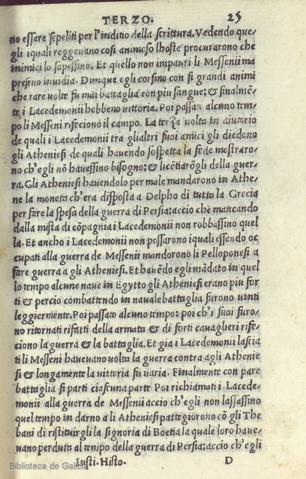 TERZO. 25
no essere sepeliti per l'inditio della scrittura. Vedendo que
gli iquali reggevano cosi animoso l'hoste procurarono che
inimici lo sapessino. Et quello non impaurì li Messenii ma
presono invidia. Dunque egli corsino con sì grandi animi
che rare volte fu mai battaglia con piu sangue: & finalmẽ
te, i Lacedemonii hebbeno vittoria. Poi passato alcuno tem-
po li Messeni rifeciono il campo. La terza volta in aiutorio
de quali i Lacedemonii tra gli altri suoi amici gli diedono
gli Atheniesi de quali havendo sospetta la fede mostraro-
no ch'egli nõ havessino bisogno: & licẽtiarõgli della guer-
ra. Gli Atheniesi havendolo per male mandarono in Athe-
ne la moneta ch'era disposta a Delpho di tutta la Grecia
per fare la spesa della guerra di Persia: accio che mancando
dalla compagnia i Lacedemonii non robbassino quel
la. Et ancho i Lacedemonii non possarono iquali essendo oc-
cupati alla guerra de Messenii mandorono li Pelloponesi a
fare guerra a gli Atheniesi. Et havẽdo egli mãdato in quel
lo tempo alcune nave in Egytto gli Atheniesi erano piu for
ti & percio combattendo in navale battaglia furono vinti
leggiermente. Poi passato alcuno tempo: poi ch'i suoi furo-
no ritornati rifatti della armata & di forti cavaglieri rife-
ciono la guerra & la battaglia. Et gia i Lacedemonii lascia
ti li Messeni havevano volta la guerra contra agli Athenie
si & longamente la vittoria fu varia. Finalmente con pare
battaglia si partì ciascuna parte. Poi richiamati i Lacede-
monii alla guerra de Messenii accio ch'egli non lassassino
quel tempo in darno a li Atheniesi pattegiorono cõ gli The
bani di restituirgli la signoria di Boetia la quale loro havea
vano perduta al tempo della guerra di Persia: accio ch'egli
Iusti. Histo. D
Biblioteca de Galicia